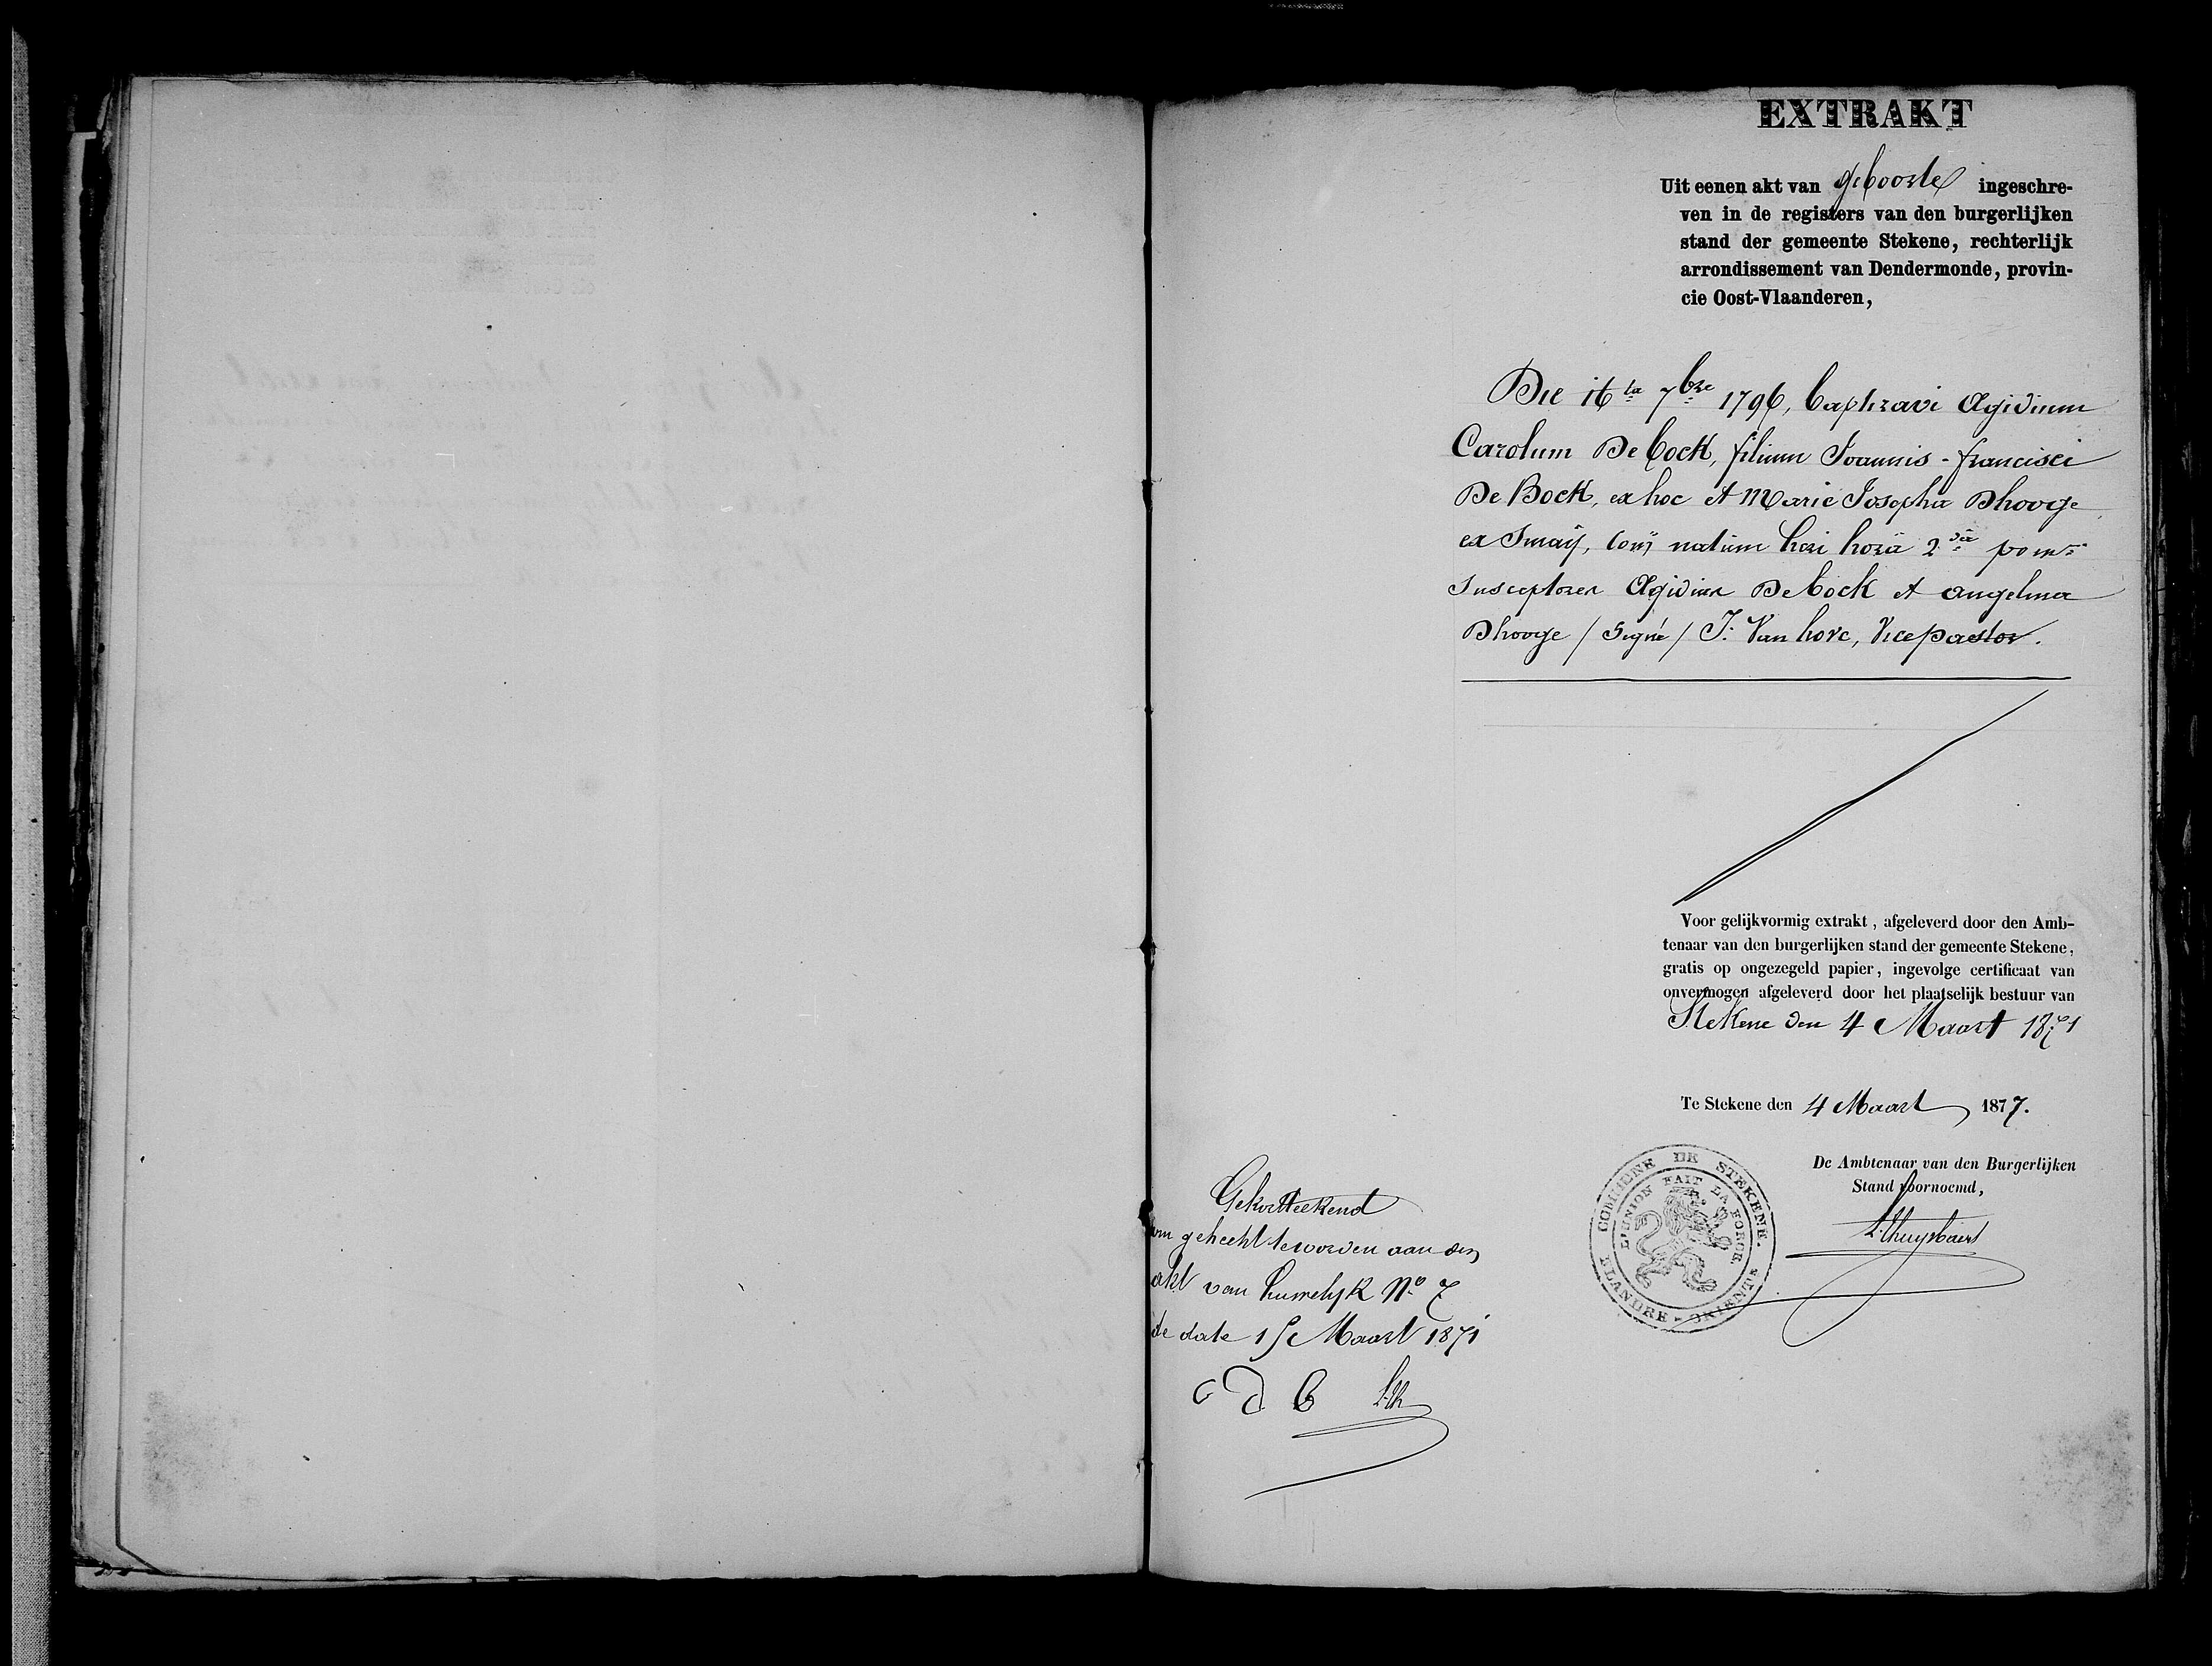 EXTRAKT
Uit eenen akt van geboorte ingeschre-
ven in de registers van den burgerlijken
stand der gemeente Stekene, rechterlijk
arrondissement van Dendermonde, provin-
cie Oost-Vlaanderen,
Die 16ta 7bre 1796, baptizavi Ægidium
Carolum De Cock, filium Joannis-francisci
De Bock, ex hoc et Marie Josepha Dhooge
ex Sinay, conj natum heri hora 2da pom
Susceptores Ægidius De Cock et angelina
Dhooge / Signé / J. Van hove, Vice pastor.
Voor gelijkvormig extrakt, afgeleverd door den Amb-
tenaar van den burgerlijken stand der gemeente Stekene,
gratis op ongezegeld papier, ingevolge certificaat van
onvermogen afgeleverd door het plaatselijk bestuur van
Stekene den 4 Maart 1871
Te Stekene den 4 Maart 1877.
De Ambtenaar van den Burgerlijken
Stand voornoemd,
COMMUNE DE STEKENE.
L'UNION FAIT LA FORCE.
FLANDRE - ORIENTLE
Gekortteekend
om gehecht te worden aan den
akt van huwelijk No 7
de date 15 Maart 1871
C D C L.Th